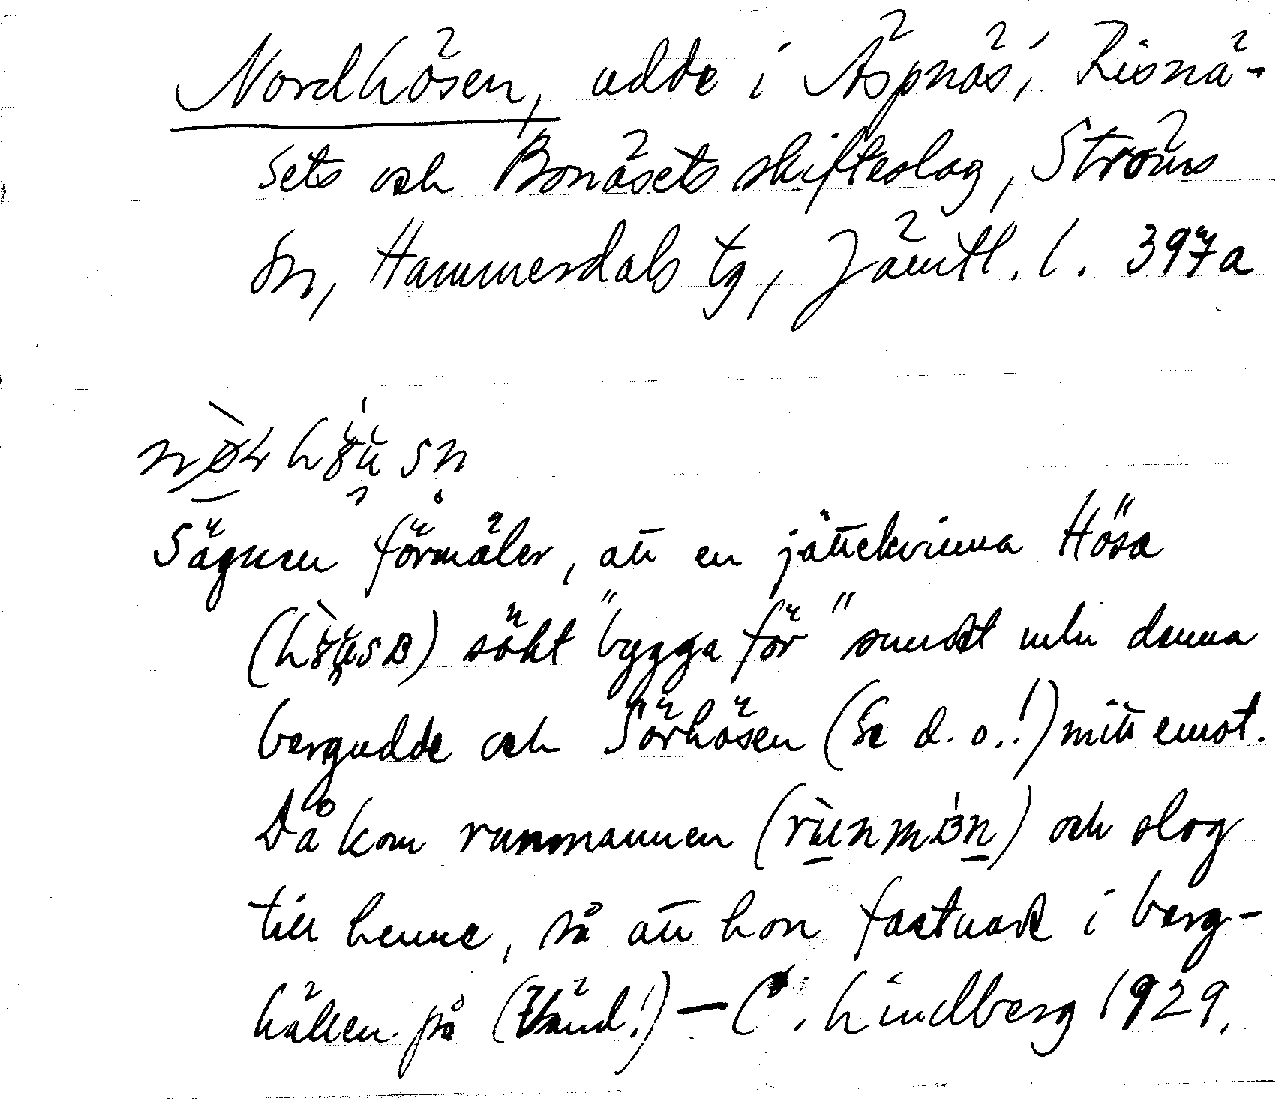 Nordhösen, udde i Äspnäs, Risnä-
sets och Bonäsets skifteslag, Ströms
sn, Hammerdals tg, Jämtl. l. 397a
Sägnen förmäler, att en jättekvinna Hösa
sökt "bygga för" sundet mln denna
bergudde och Sörhösen (Se d. o.!) mitt emot.
Då kom runmannen och slog
till henne, så att hon fastnade i berg-
hällen på (Vänd!) — C. Lindberg 1929.